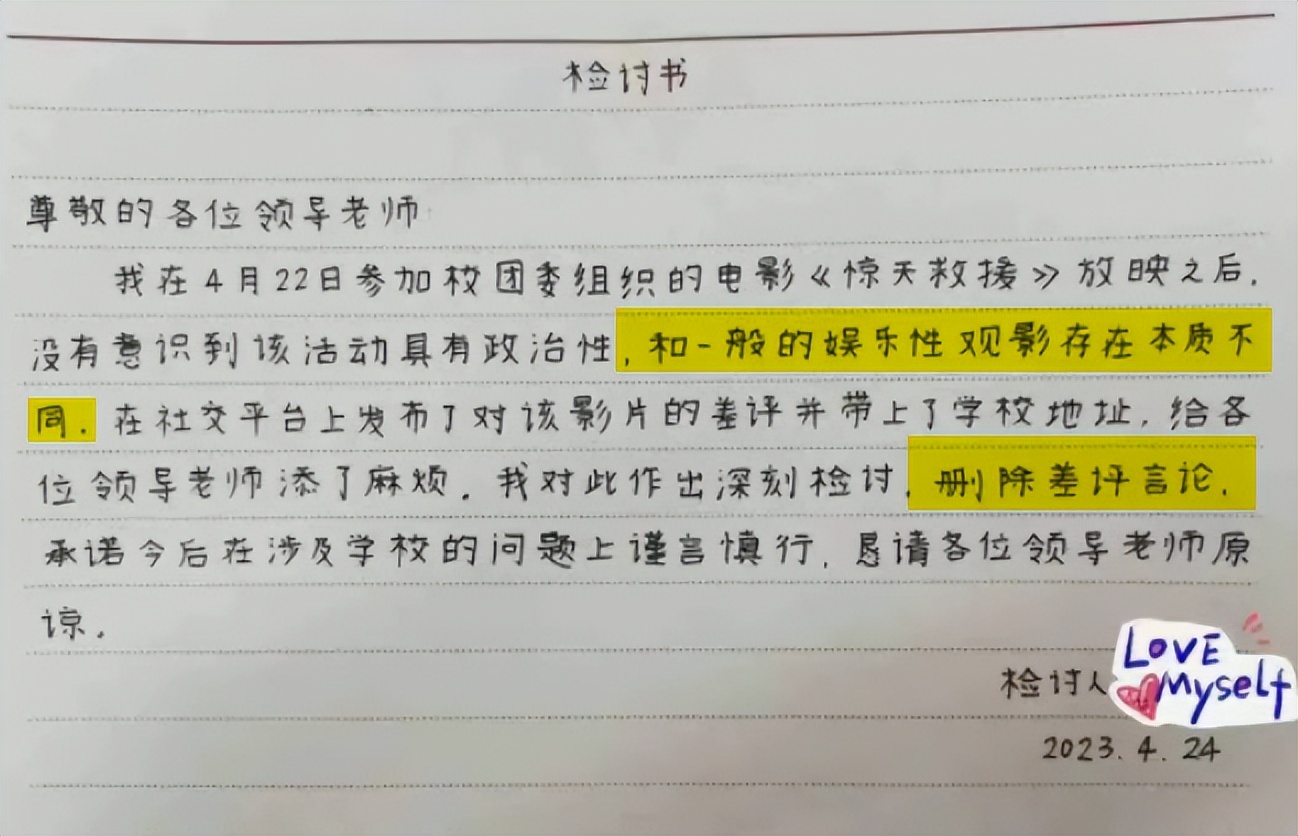 检讨书
尊敬的各位领导老师
我在4月22日参加校团委组织的电影《惊天救援》放映之后，
没有意识到该活动具有政治性，和一般的娱乐性观影存在本质不
同。在社交平台上发布了对该影片的差评并带上了学校地址，给各
位领导老师添了麻烦。我对此作出深刻检讨，删除差评言论，
承诺今后在涉及学校的问题上谨言慎行，恳请各位领导老师原
谅。
检讨人
LOVE
Myself
2023.4.24